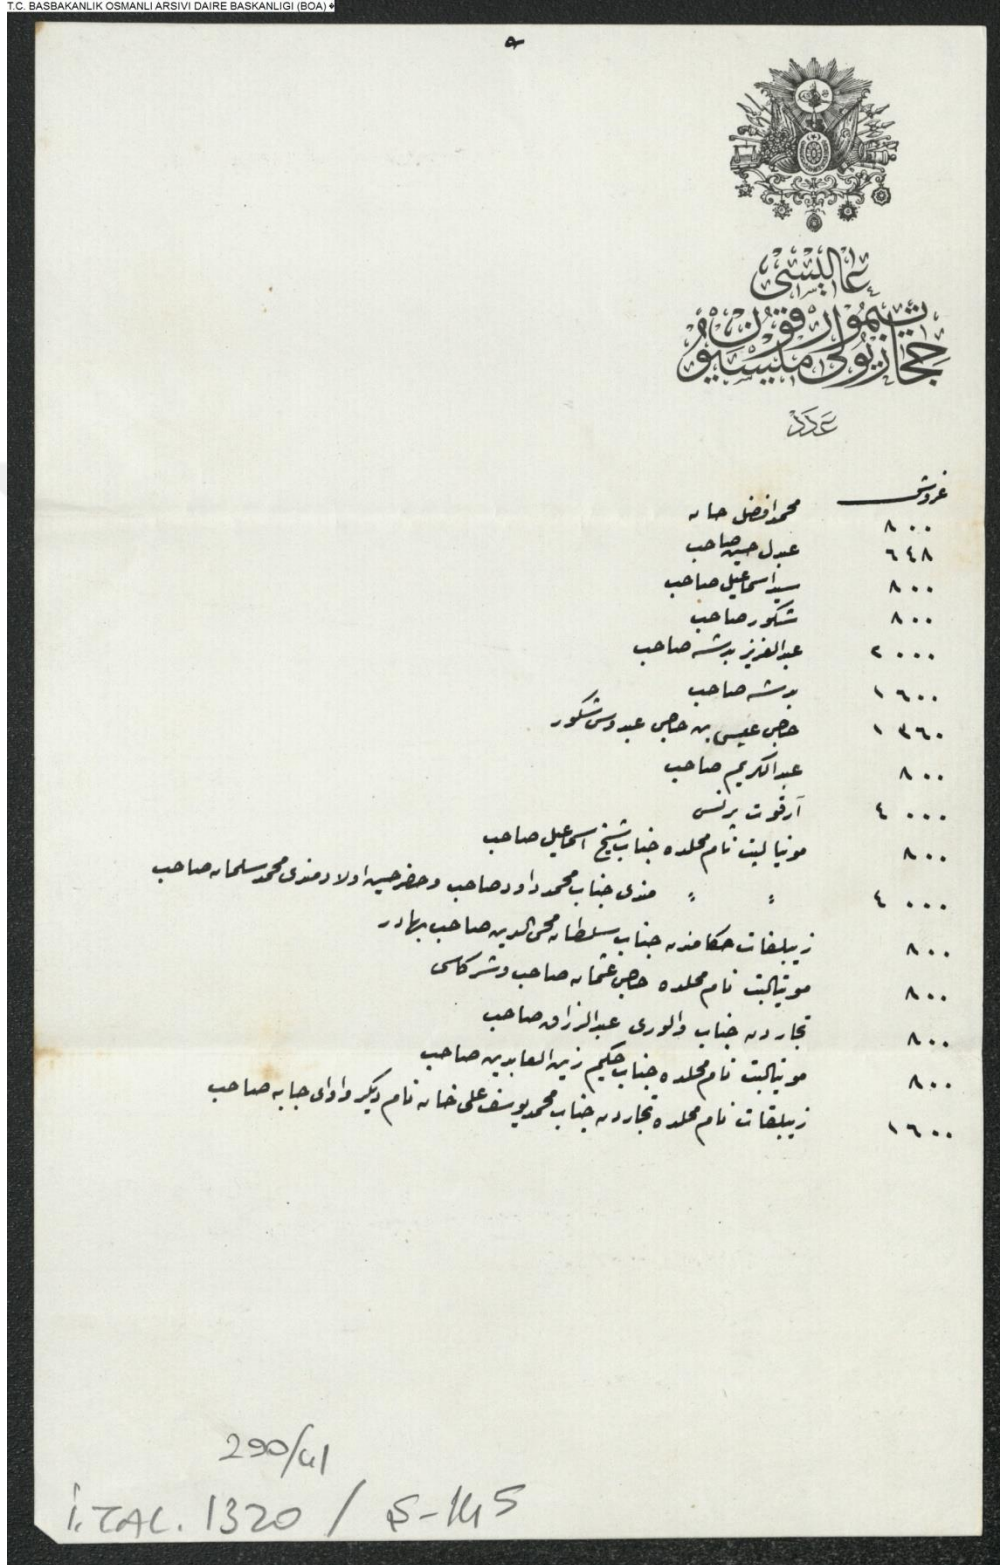 T.C. BASBAKANLIK OSMANLI ARSIVI DAIRE BASKANLIGI (BOA)
٥
حجاز تيمور يولى قومسيون
عاليسى
عدد
غروش
٨٠٠ محمد افضل خان
٦٤٨ عبدل حسين صاحب
٨٠٠ سيد اسماعيل صاحب
٨٠٠ شكور صاحب
٢٠٠٠ عبدالعزيز بدشه صاحب
١٦٠٠ بدشه صاحب
١٣٦٠ حاجى عيسى بن حاجى عبدوس شكور
٨٠٠ عبدالكريم صاحب
٤٠٠٠ آرقوت پرنس
٨٠٠ نام محلده جناب شيخ اسماعيل صاحب
٤٠٠٠ " " جناب محمد داود صاحب و خضر حسين اولاد محمد سلمان صاحب
٨٠٠ جناب سلطان محى الدين صاحب بهادر
٨٠٠ نام محلده حاجى عثمان صاحب و شركاسى
٨٠٠ تجاردن جناب عبدالرزاق صاحب
٨٠٠ نام محلده جناب حكيم زين العابدين صاحب
١٦٠٠ نام محلده تجاردن جناب محمد يوسف على خان نام ديكر صاحب
290/41
İ.TAL. 1320 / Ş-145